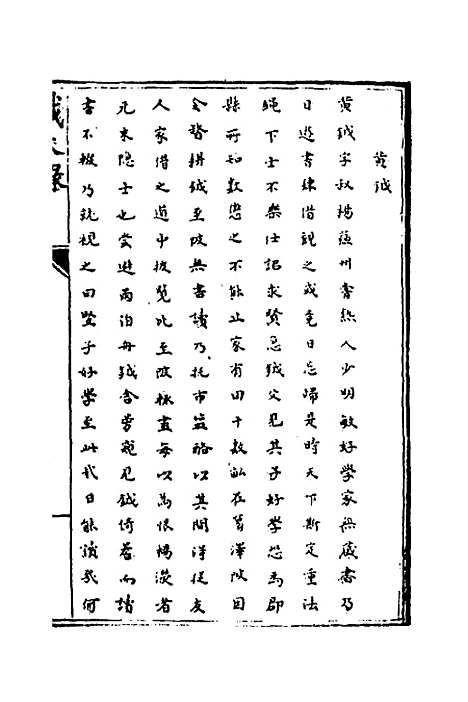 黄鉞
黄鉞字叔揚蘇州常熟人少明敏好學家無藏書乃
日遊書肆借觀之或竟日忘歸是時天下新定重法
繩下士不樂仕詔求賢急鉞父見其子好學恐爲郡
縣所知數懲之不能止家有田十數畝在葛澤陂因
令督耕鉞至陂無書讀乃托市鹽酪以其間得從友
人家借之道中披覽比至陂輒盡每以爲恨楊濙者
元末隱士也嘗避雨泊舟鉞舍旁窺見鉞倚蒼而讀
書不輟乃就視之曰豎子好學至此哉日能讀幾何